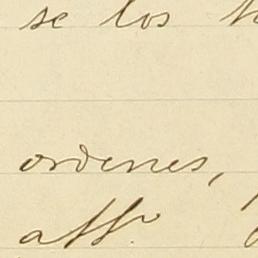 se los
ordenes,
affr